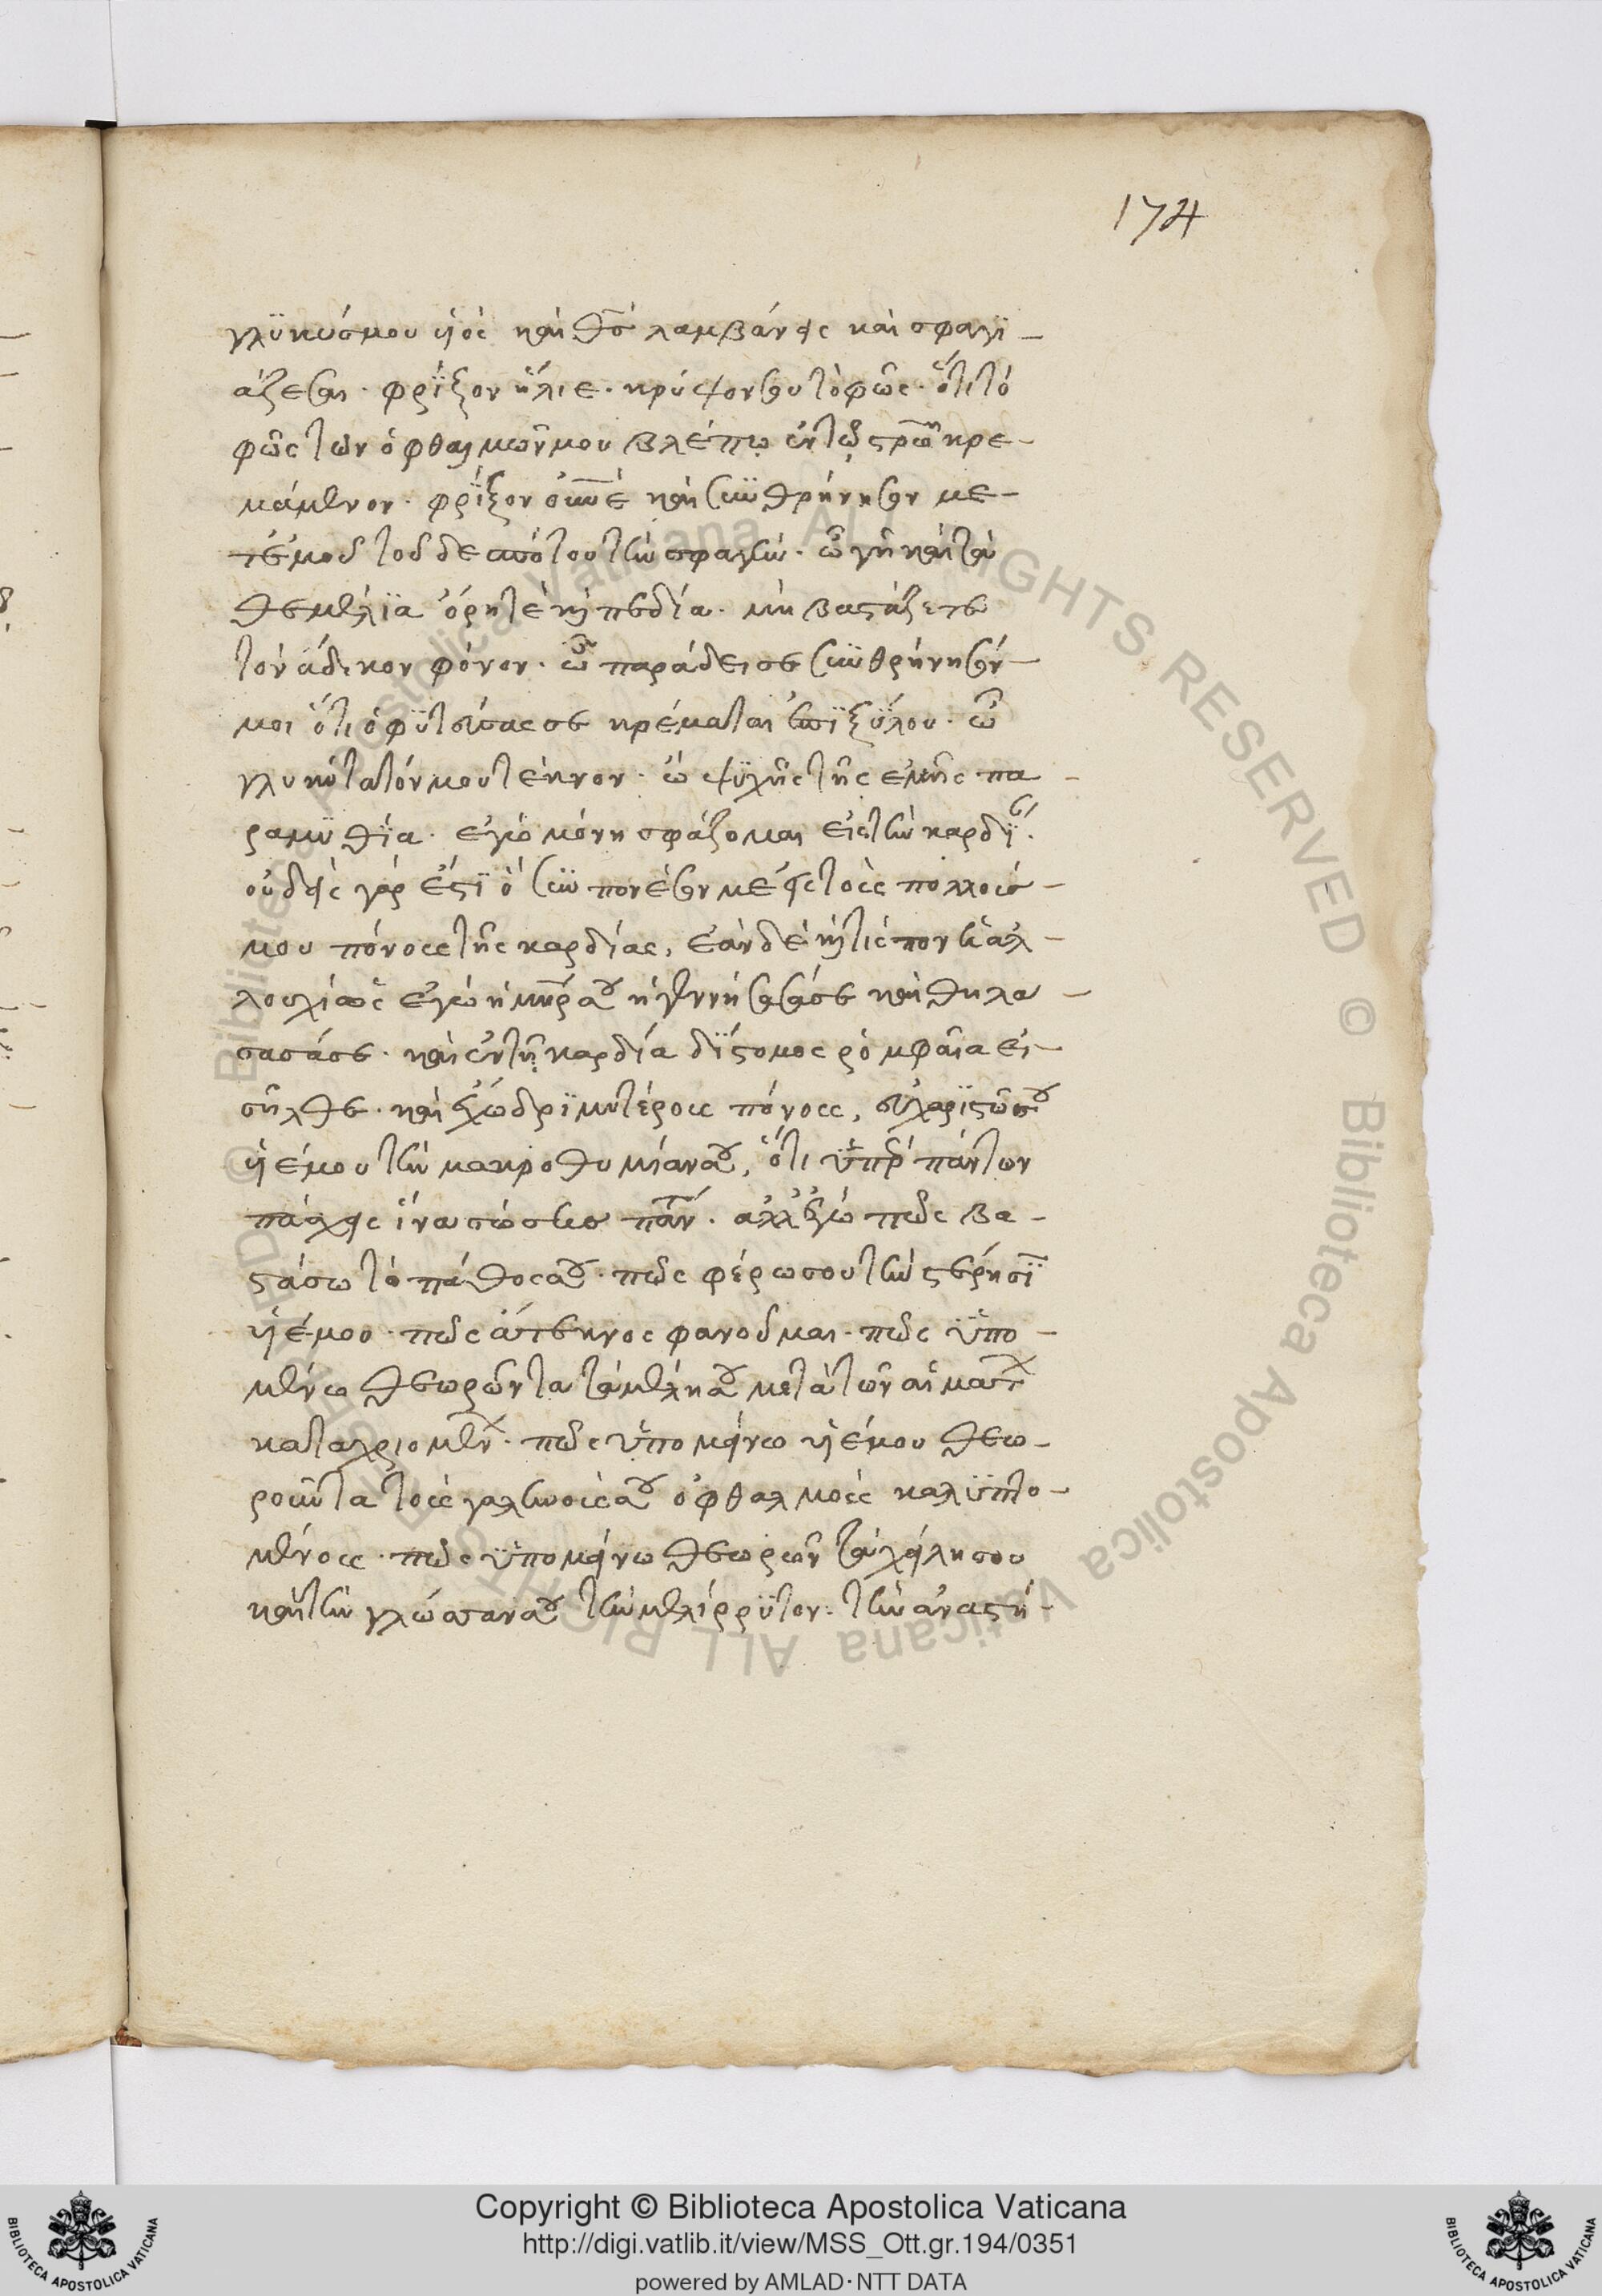 174
γλϋκύσμου ϋὸς καὶ θς̅ λαμβάνεις καὶ σφαγϊ-
άζεσαι· φρΐξον ἥλιε· κρύψον σου τὸ φῶς· ὅτι τὸ
φῶς τῶν ὀφθαλμῶν μου βλέπω ἐν τῷ στρω̅ κρε-
μάμενον· φρΐξον οὐνέ καὶ συϋθρήνησον με-
τ' ἐμοῦ τοῦ δεσπότου τὴν σφαγὴν· ὦ γῆ καὶ τὰ
θεμέλϊα ὄρη τὲ κὶ πεδία· μὴ βαστάζετε
τὸν ἄδικον φόνον· ὦ παράδεισε συϋθρήνησόν
μοι ὅτι ὁ φϋτεύσας σε κρέμαται ἐπῒ ξΰλου· ὦ
γλυκύτατόν μου τέκνον· ὦ ψϋχῆς τῆς ἐμῆς πα-
ραμϋθΐα· ἐγὼ μόνη σφάζομαι εἰς τὴν καρδΐ·
οὐδεὶς γάρ ἐστϊ ὁ συϋπονέσων με εἰς τοὺς πολλούς
μου πόνους τῆς καρδίας, ἐὰν δὲ κὶ τὶς πονεῖ ἀλ-
λ' οὐχὶ ὡς ἐγὼ ἡ μηρ̅ σου ἡ γεννήσασά σε καὶ θηλα-
σασά σε· καὶ ἐν τῇ καρδία δϊστομος ρομφαῖα εἰ-
σῆλθε· καὶ ἔχω δρϊμυτέρους πόνους, εὐχαρϊστῶ σου
ϋἱέ μου τὴν μακροθυμίαν σου, ὅτι ϋπὲρ πάντων
πάσχεις ἵνα σώσεις παν̅· ἀλλ' ἐγὼ πῶς βα-
στάσω τὸ πάθος σου· πῶς φέρω σου τὴν στέρησϊ̅
ϋἱέ μου· πῶς ἄτεκνος φανοῦμαι· πῶς ϋπο-
μένω θεωρῶντα τὰ μέλη σου μετὰ τῶν αἱματ
καταχριομεν· πῶς ϋπομείνω ϋἱέ μου θεω-
ροῦντα τοὺς γαληνοὺς σου ὀφθαλμοὺς καλϋπτο-
μένους· πῶς ϋπομείνω θεωρῶν τὰ χείλη σου
καὶ τὴν γλῶσσαν σου τὴν μελίρρϋτον· τὴν ἀναστή-
Copyright © Biblioteca Apostolica Vaticana
http://digi.vatlib.it/view/MSS_Ott.gr.194/0351
powered by AMLAD·NTT DATA